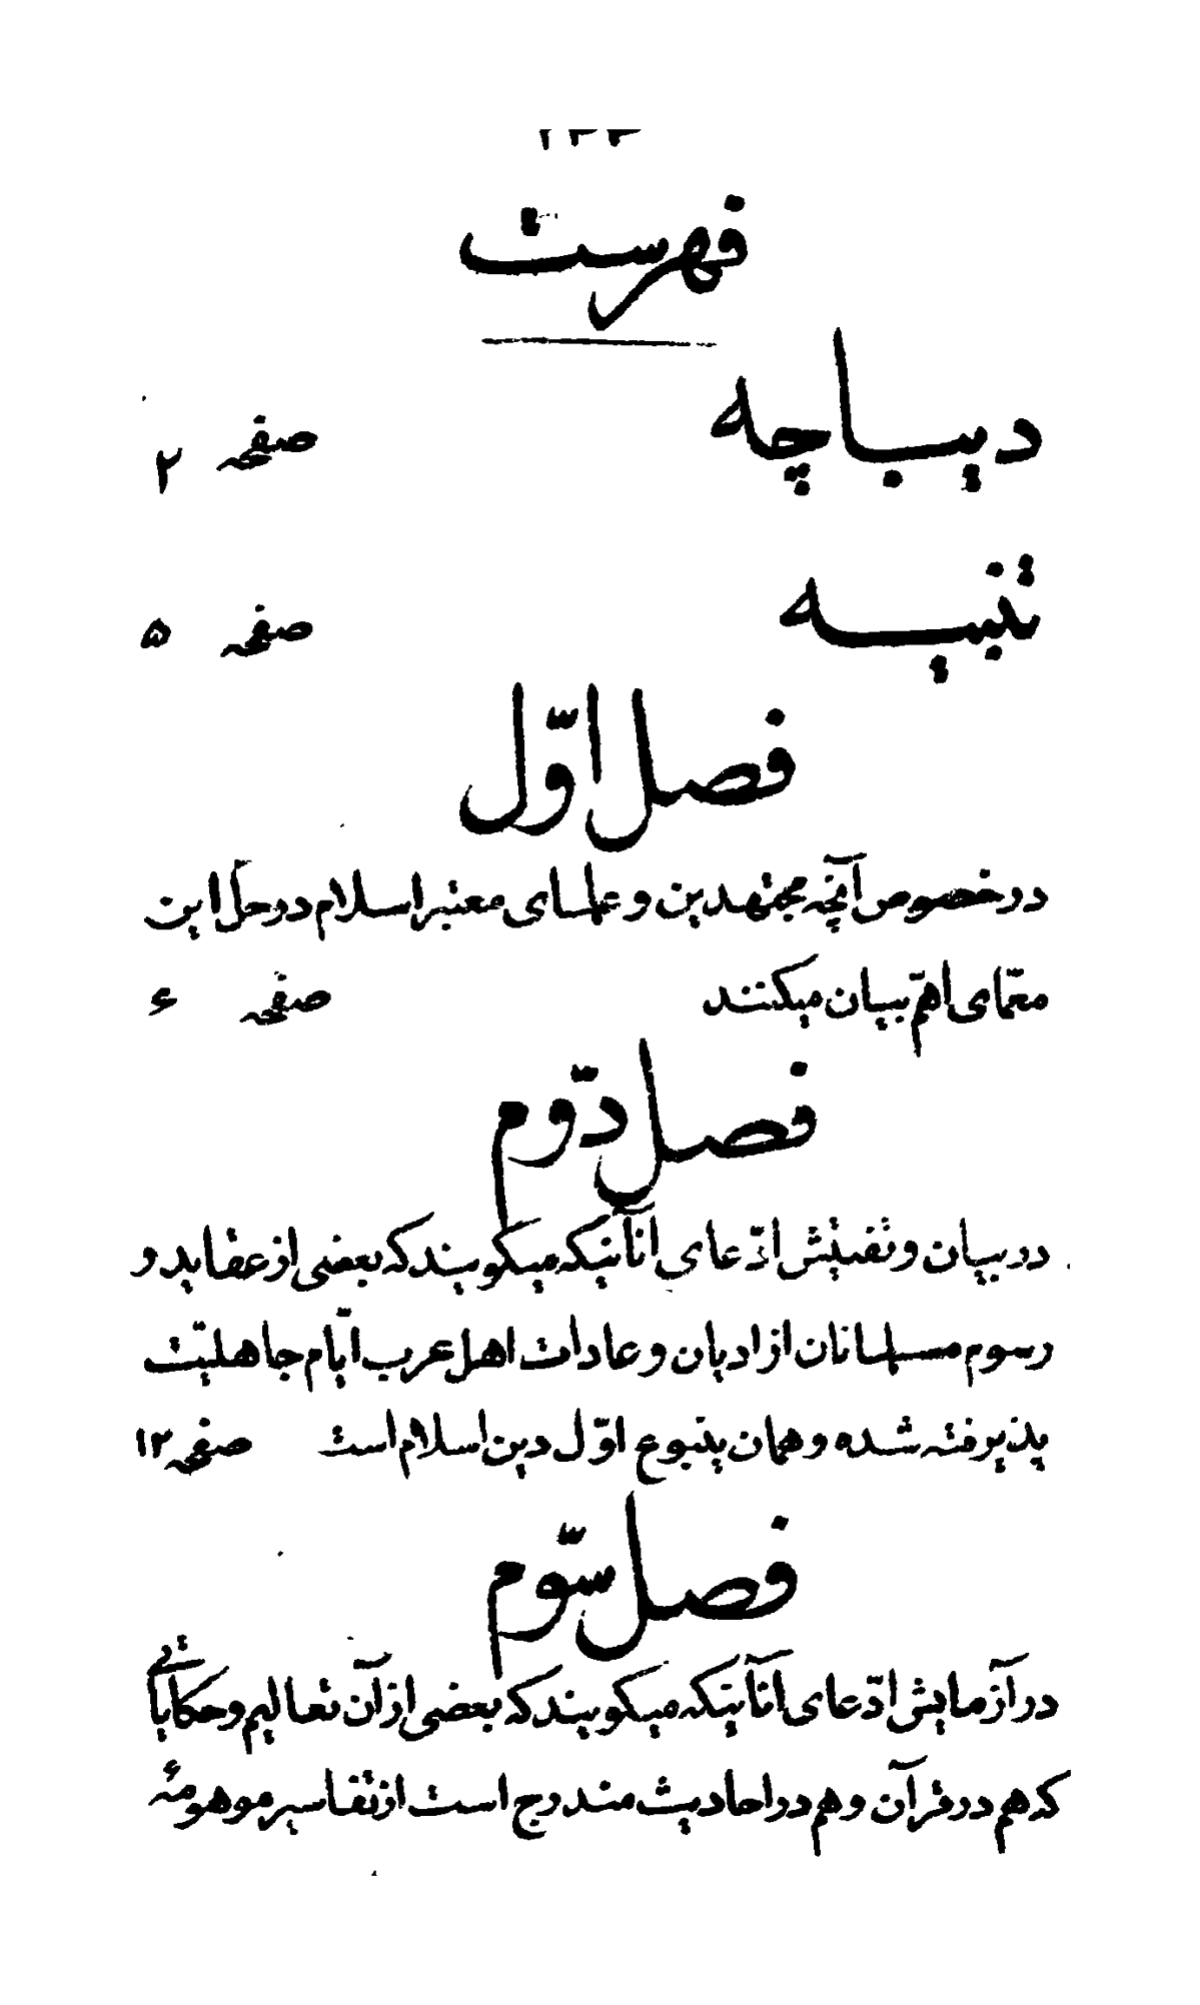 فهرست
دیباچه صفحه ۲
تنبیه صفحه ۵
فصل اوّل
در خصوص آنچه مجتهدین و علمای معتبر اسلام در حلّ این
معمّای اهمّ بیان میکنند صفحه ۶
فصل دوّم
در بیان و تفتیش ادّعای آنانیکه میگویند که بعضی از عقاید و
رسوم مسلمانان از ادیان و عادات اهل عرب ایّام جاهلیّت
پذیرفته شده و همان ینبوع اوّل دین اسلام است صفحه ۱۲
فصل سوّم
در آزمایش ادّعای آنانیکه میگویند که بعضی از آن تعالیم و حکایاتی
که هم در قرآن و هم در احادیث مندرج است از تفاسیر موهومهٔ